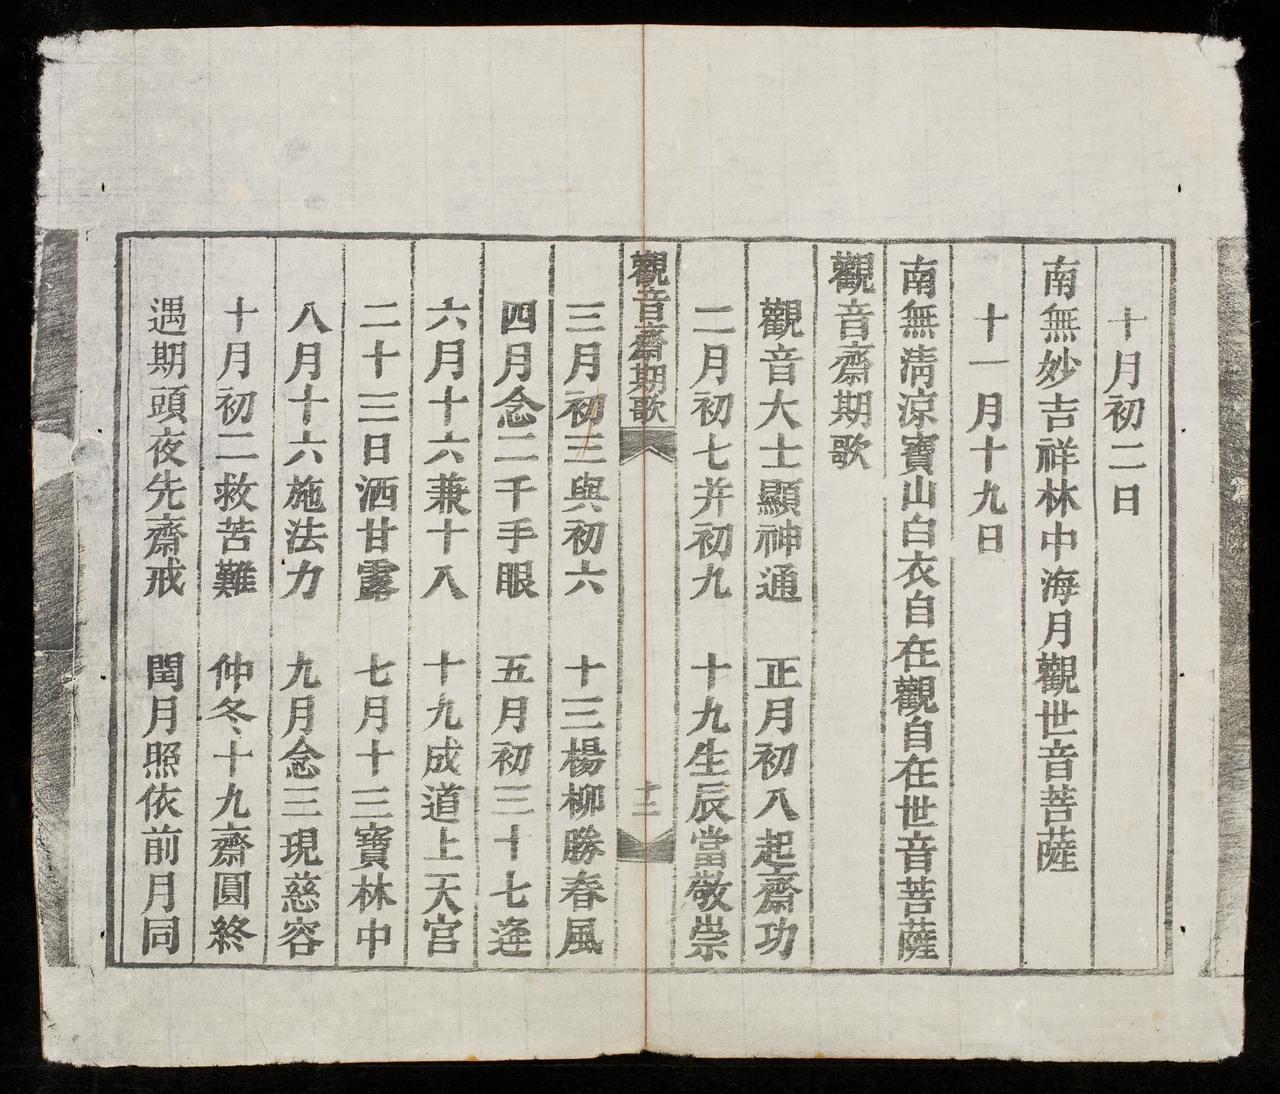 十月初二日
南無妙吉祥林中海月觀世音菩薩
十一月十九日
南無清凉寶山白衣自在觀自在世音菩薩
觀音齋期歌
觀音大士顯神通　正月初八起齋功
二月初七并初九　十九生辰當敬崇
觀音齋期歌　十二
三月初三與初六　十三楊柳勝春風
四月念二千手眼　五月初三十七逢
六月十六兼十八　十九成道上天宮
二十三日洒甘露　七月十三寶林中
八月十六施法力　九月念三現慈容
十月初二救苦難　仲冬十九齋圓終
遇期頭夜先齋戒　閏月照依前月同